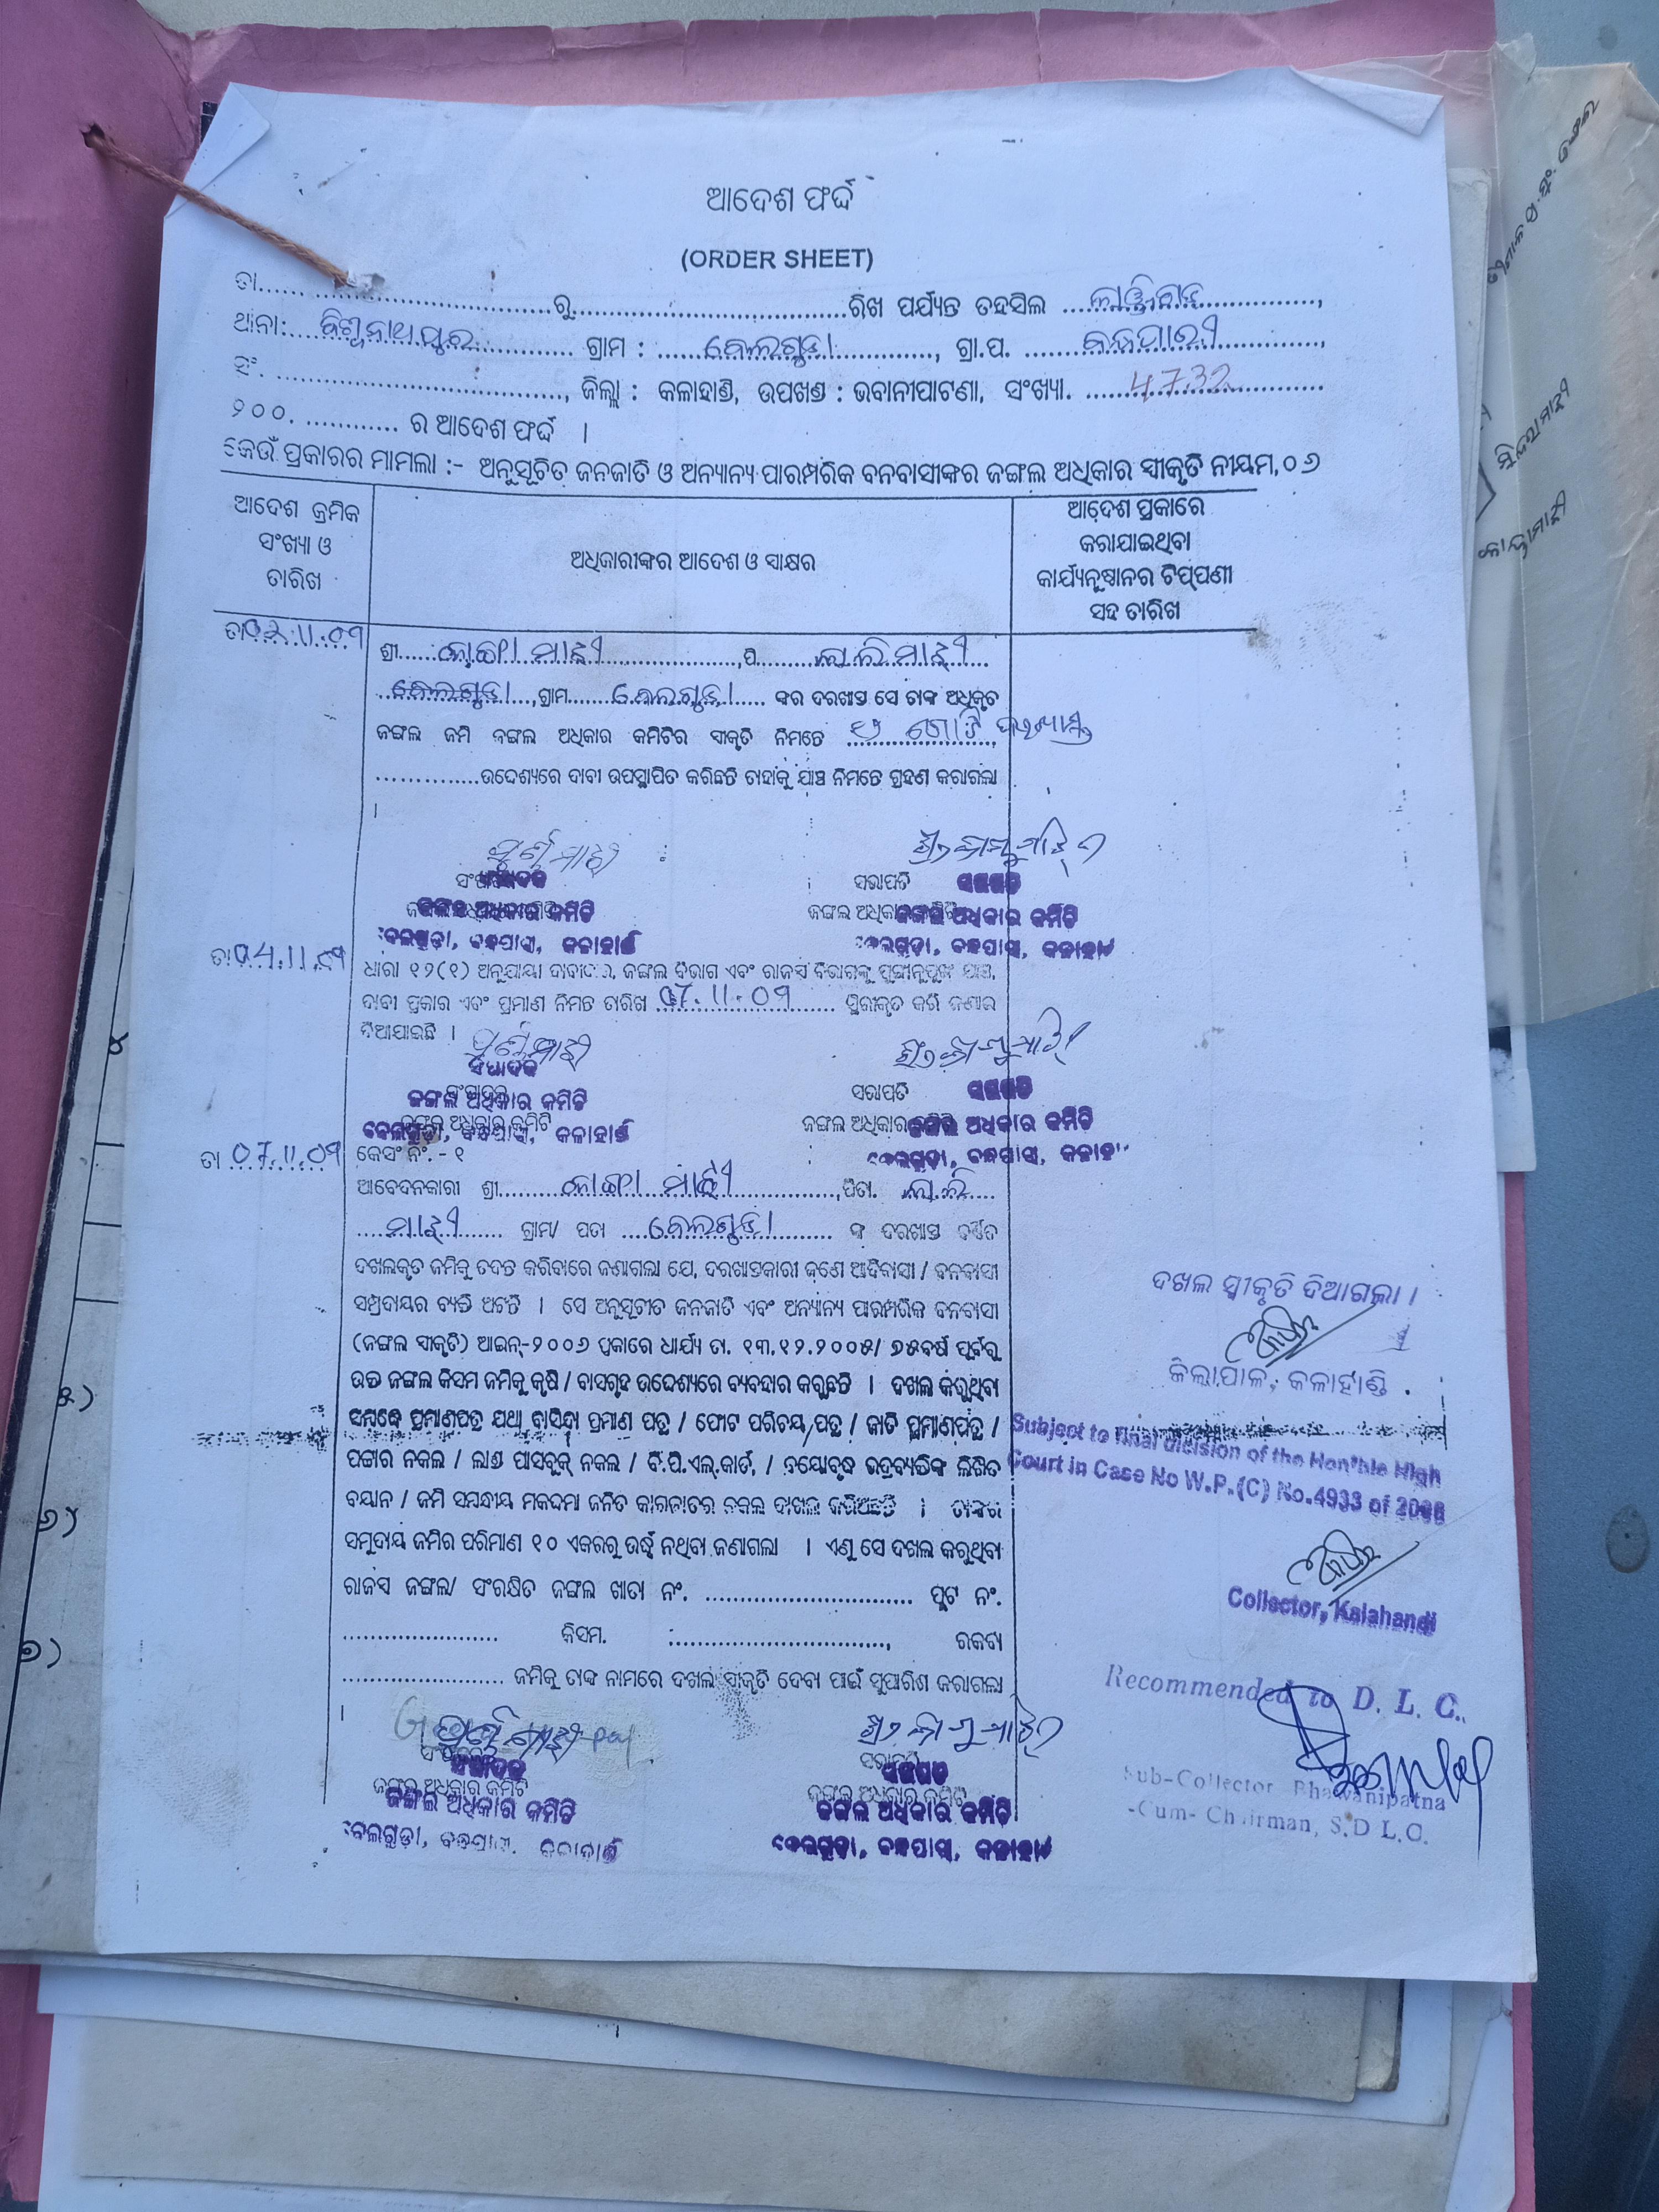 ଆଦେଶ ଫର୍ଦ୍ଦ
(ORDER SHEET)
ତା.............ରୁ.............ରିଖ ପର୍ଯ୍ୟନ୍ତ ତହସିଲ
ଥାନା: ବିଶ୍ୱନାଥପୁର ଗ୍ରାମ : ବେଲଗୁଡା, ଗ୍ରା.ପ.
ନଂ. ............., ଜିଲ୍ଲା : କଳାହାଣ୍ଡି, ଉପଖଣ୍ଡ : ଭବାନୀପାଟଣା, ସଂଖ୍ୟା. 4732
୨୦୦. ............ ର ଆଦେଶ ଫର୍ଦ୍ଦ ।
କେଉଁ ପ୍ରକାରର ମାମଲା :- ଅନୁସୂଚିତ ଜନଜାତି ଓ ଅନ୍ୟାନ୍ୟ ପାରମ୍ପରିକ ବନବାସୀଙ୍କର ଜଙ୍ଗଲ ଅଧିକାର ସ୍ୱୀକୃତି ନୀୟମ,୦୬
ଆଦେଶ କ୍ରମିକ
ସଂଖ୍ୟା ଓ
ତାରିଖ
ଅଧିକାରୀଙ୍କର ଆଦେଶ ଓ ସାକ୍ଷର
ଆଦେଶ ପ୍ରକାରେ
କରାଯାଇଥିବା
କାର୍ଯ୍ୟନୁଷ୍ଠାନର ଟିପ୍‌ପଣୀ
ସହ ତାରିଖ
ଶ୍ରୀ ମାଝୀ ,ପି ମାଝୀ
ବେଲଗୁଡା, ଗ୍ରାମ ବେଲଗୁଡା ଙ୍କର ଦରଖାସ୍ତ ସେ ତାଙ୍କ ଅଧିକୃତ
ଜଙ୍ଗଲ ଜମି ଜଙ୍ଗଲ ଅଧିକାର କମିଟିର ସ୍ୱୀକୃତି ନିମନ୍ତେ ଗୋଟି ଦରଖାସ୍ତ
.............ଉଦ୍ଦେଶ୍ୟରେ ଦାବୀ ଉପସ୍ଥାପିତ କରିଛନ୍ତି ତାହାକୁ ଯାଞ୍ଚ ନିମନ୍ତେ ଗ୍ରହଣ କରାଗଲା
।
ପୂର୍ଣ୍ଣ ମାଝୀ
ସଂପାଦକ
ସଭାପତି
ଜଙ୍ଗଲ ଅଧିକାର କମିଟି
ଜଙ୍ଗଲ ଅଧିକାର କମିଟି
ବେଲଗୁଡ଼ା, କଳାହାଣ୍ଡି
ବେଲଗୁଡ଼ା, କଳାହାଣ୍ଡି
ଧାରା ୧୨(୧) ଅନୁଯାୟୀ ଦାବୀଦାର, ଜଙ୍ଗଲ ବିଭାଗ ଏବଂ ରାଜସ୍ୱ ବିଭାଗଙ୍କୁ ପୁଙ୍ଖାନୁପୁଙ୍ଖ ଯାଞ୍ଚ,
ଦାବୀ ପ୍ରକାର ଏବଂ ପ୍ରମାଣ ନିମନ୍ତେ ତାରିଖ 07.11.0୭ ସ୍ଥିରୀକୃତ କରି ଜଣାଇ
ଦିଆଯାଇଛି ।
ପୂର୍ଣ୍ଣ ମାଝୀ
ସଂପାଦକ
ସଭାପତି
ଜଙ୍ଗଲ ଅଧିକାର କମିଟି
ଜଙ୍ଗଲ ଅଧିକାର କମିଟି
ବେଲଗୁଡ଼ା, କଳାହାଣ୍ଡି
ବେଲଗୁଡ଼ା, କଳାହାଣ୍ଡି
ତା 07.11.0୭ କେସ୍ ନଂ. - ୧
ଆବେଦନକାରୀ ଶ୍ରୀ ମାଝୀ, ପିତା.
ମାଝୀ ଗ୍ରାମ/ ପଡା ବେଲଗୁଡା ଙ୍କ ଦରଖାସ୍ତ ବର୍ଣ୍ଣିତ
ଦଖଲକୃତ ଜମିକୁ ତଦନ୍ତ କରିବାରେ ଜଣାଗଲା ଯେ, ଦରଖାସ୍ତକାରୀ ଜଣେ ଆଦିବାସୀ / ବନବାସୀ
ସମ୍ପ୍ରଦାୟର ବ୍ୟକ୍ତି ଅଟନ୍ତି । ସେ ଅନୁସୂଚୀତ ଜନଜାତି ଏବଂ ଅନ୍ୟାନ୍ୟ ପାରମ୍ପରିକ ବନବାସୀ
(ଜଙ୍ଗଲ ସ୍ୱୀକୃତି) ଆଇନ୍-୨୦୦୬ ପ୍ରକାରେ ଧାର୍ଯ୍ୟ ତା. ୧୩.୧୨.୨୦୦୫/ ୭୫ବର୍ଷ ପୂର୍ବରୁ
ଉକ୍ତ ଜଙ୍ଗଲ କିସମ ଜମିକୁ କୃଷି / ବାସଗୃହ ଉଦ୍ଦେଶ୍ୟରେ ବ୍ୟବହାର କରୁଛନ୍ତି । ଦଖଲ କରୁଥିବା
ସମ୍ବନ୍ଧେ ପ୍ରମାଣପତ୍ର ଯଥା ବାସିନ୍ଦା ପ୍ରମାଣ ପତ୍ର / ଫୋଟ ପରିଚୟ ପତ୍ର / ଜାତି ପ୍ରମାଣପତ୍ର /
ପଟ୍ଟାର ନକଲ / ଲାଣ୍ଡ ପାସବୁକ୍ ନକଲ / ବି.ପି.ଏଲ୍.କାର୍ଡ, / ବୟୋବୃଦ୍ଧ ଭଦ୍ରବ୍ୟକ୍ତିଙ୍କ ଲିଖିତ
ବୟାନ / ଜମି ସମ୍ବନ୍ଧୀୟ ମକଦମା ଜନିତ କାଗଜାତର ନକଲ ଦାଖଲ କରିଅଛନ୍ତି । ତାଙ୍କର
ସମୁଦାୟ ଜମିର ପରିମାଣ ୧୦ ଏକରରୁ ଉର୍ଦ୍ଧ୍ୱ ନଥିବା ଜଣାଗଲା । ଏଣୁ ସେ ଦଖଲ କରୁଥିବା
ରାଜସ୍ୱ ଜଙ୍ଗଲ/ ସଂରକ୍ଷିତ ଜଙ୍ଗଲ ଖାତା ନଂ. ............. ପ୍ଲଟ ନଂ.
............. କିସମ. ............., ରକବା
............. ଜମିକୁ ତାଙ୍କ ନାମରେ ଦଖଲ ସ୍ୱୀକୃତି ଦେବା ପାଇଁ ସୁପାରିଶ କରାଗଲା
।
ସଂପାଦକ
ସଭାପତି
ଜଙ୍ଗଲ ଅଧିକାର କମିଟି
ଜଙ୍ଗଲ ଅଧିକାର କମିଟି
ବେଲଗୁଡ଼ା, କଳାହାଣ୍ଡି
ବେଲଗୁଡ଼ା, କଳାହାଣ୍ଡି
ଦଖଲ ସ୍ୱୀକୃତି ଦିଆଗଲା ।
ଜିଲ୍ଲାପାଳ, କଳାହାଣ୍ଡି .
Subject to final dicision of the Hon'ble High
Court in Case No W.P.(C) No.4933 of
Collector, Kalahandi
Recommended to D. L. C.
Sub-Collector Bhawanipatna
-Cum- Chairman, S.D L.C.